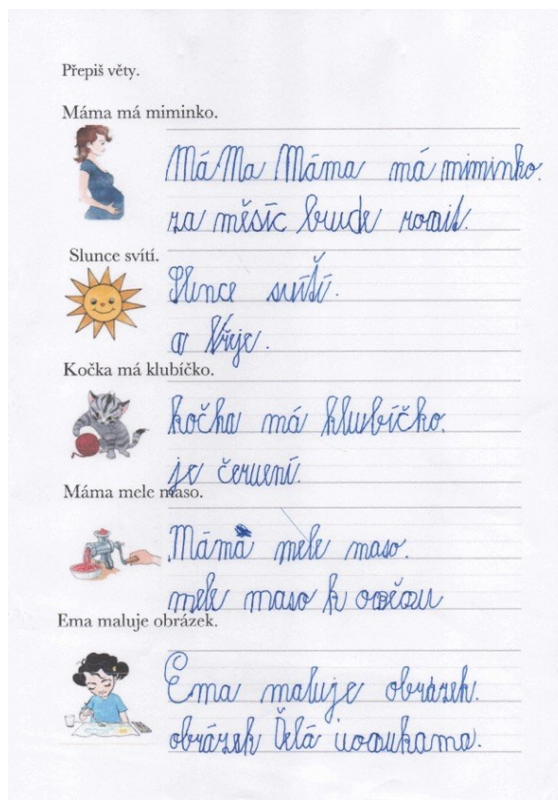 Přepiš věty.
Máma má miminko.
Má Ma Máma má miminko.
za měsíc bude
Slunce svítí.
Slunce svítí.
a hřeje.
Kočka má klubíčko.
kočka má klubíčko.
je červení.
Máma mele maso.
Máma mele maso.
mele maso k
Ema maluje obrázek.
Ema maluje obrázek.
obrázek Ďelá